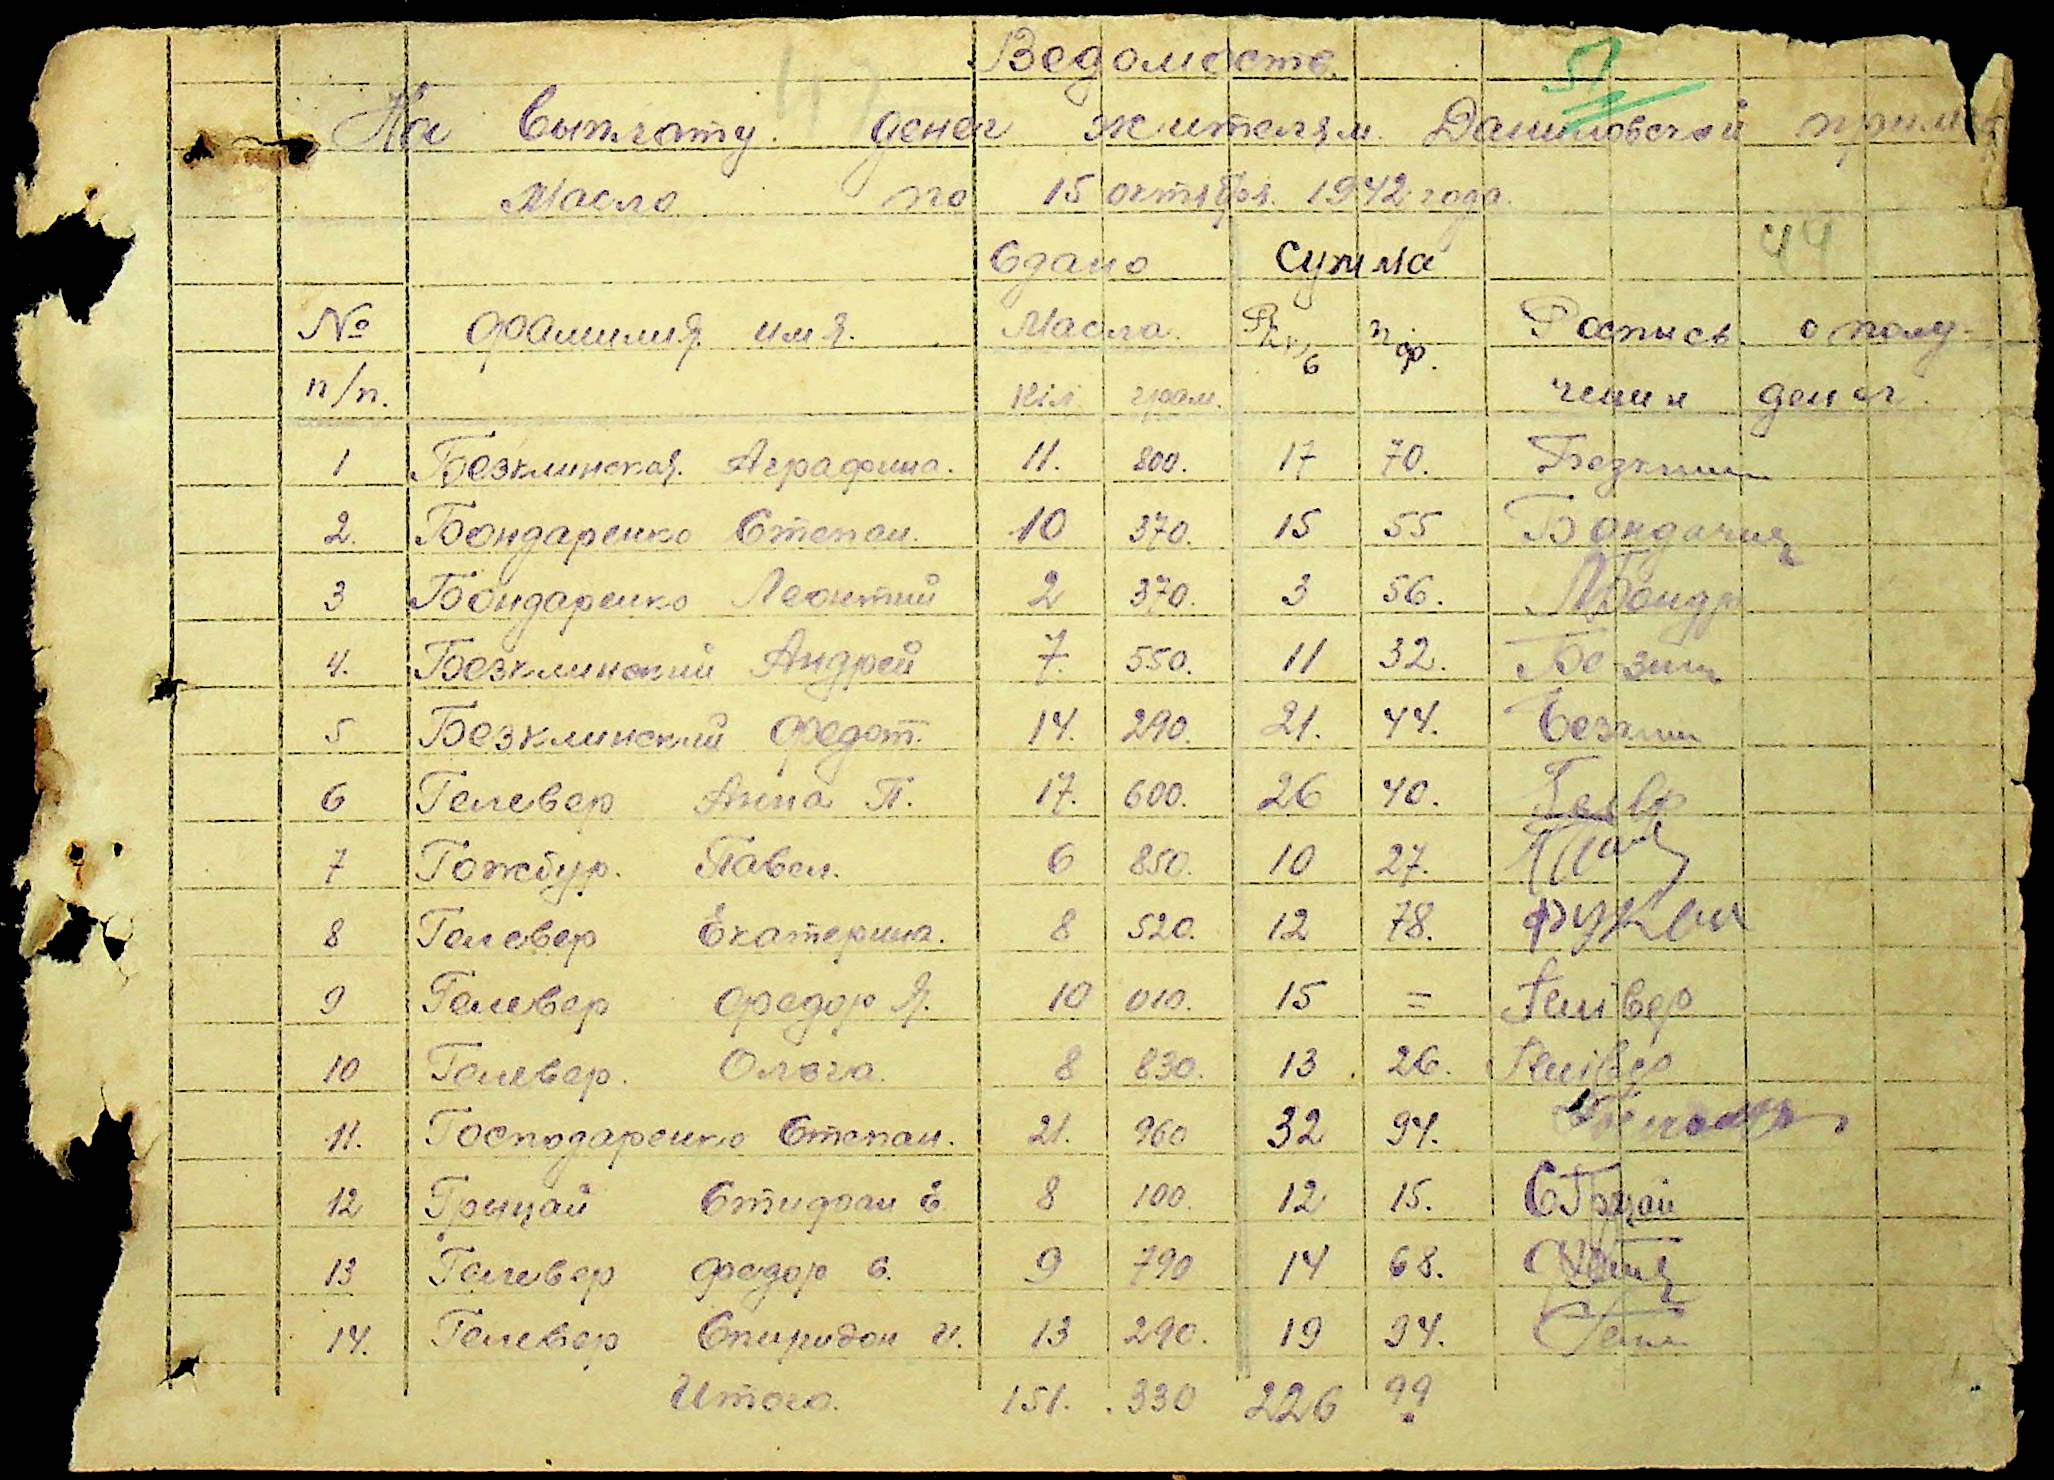 Ведомость
57
На выплату денег жителям Даниловской
Масло по 15 октября 1942 года.
44
Сдано Сумма
№ Фамилия имя. Масла. Руб пф. Роспись о полу-
п/п. кіл грам. чении денег
1 Безклинская Аграфина. 11. 800. 17 70.
2. Бондаренко Степан. 10 370. 15 55
3 Бондаренко Леонтий 2 370. 3 56.
4. Безклинский Андрей 7. 550. 11 32.
5 Безклинский Федот. 14. 290. 21. 44.
6 Гелевер Анна П. 17. 600. 26 40.
7 Гожбур. Павел. 6 850. 10 27.
8 Гелевер Екатерина. 8 520. 12 78.
9 Гелевер Федор Я. 10 010. 15 = Гелівер
10 Гелевер. Ольга. 8 830. 13 26. Гелівер
11. Господаренко Степан. 21. 960 32 94.
12 Грыцай Стидфан Е 8 100. 12 15. СГрцай
13 Гелевер Федор С. 9 790 14 68.
14. Гелевер Спиридон И. 13 290. 19 94.
Итого. 151. 330 226 99